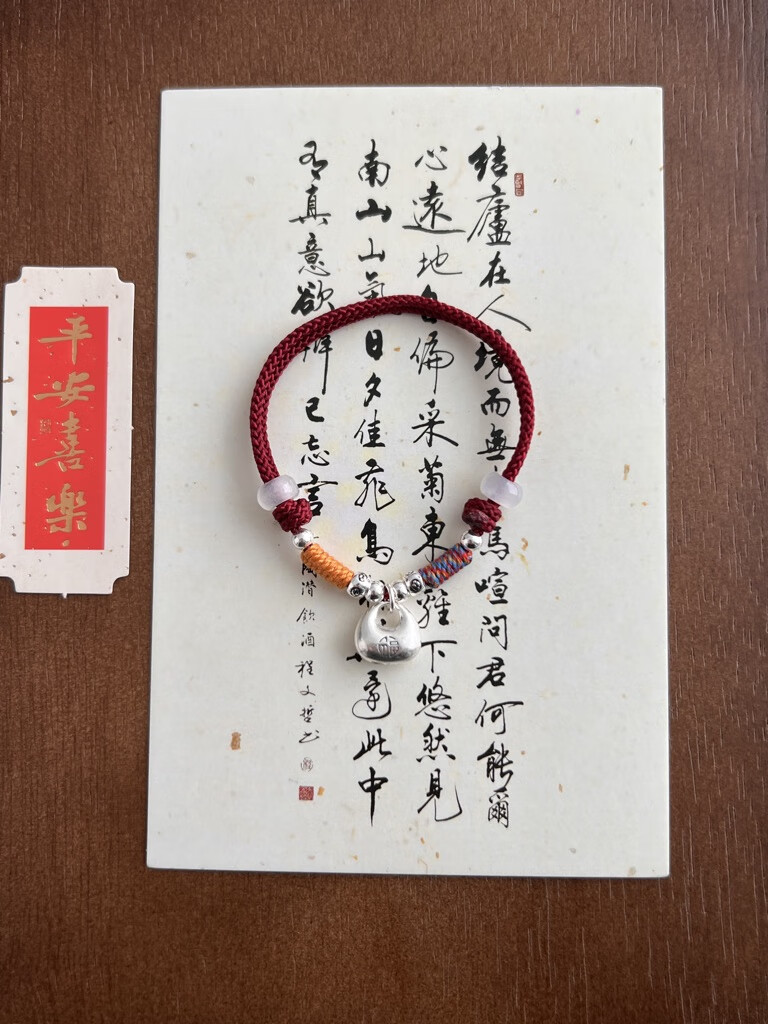 結廬在人境而無馬喧問君何能爾
心遠地自偏采菊東籬下悠然見
南山山氣日夕佳飛鳥還此中
有真意欲辨已忘言
潛飲酒程文哲书
平安喜樂
福